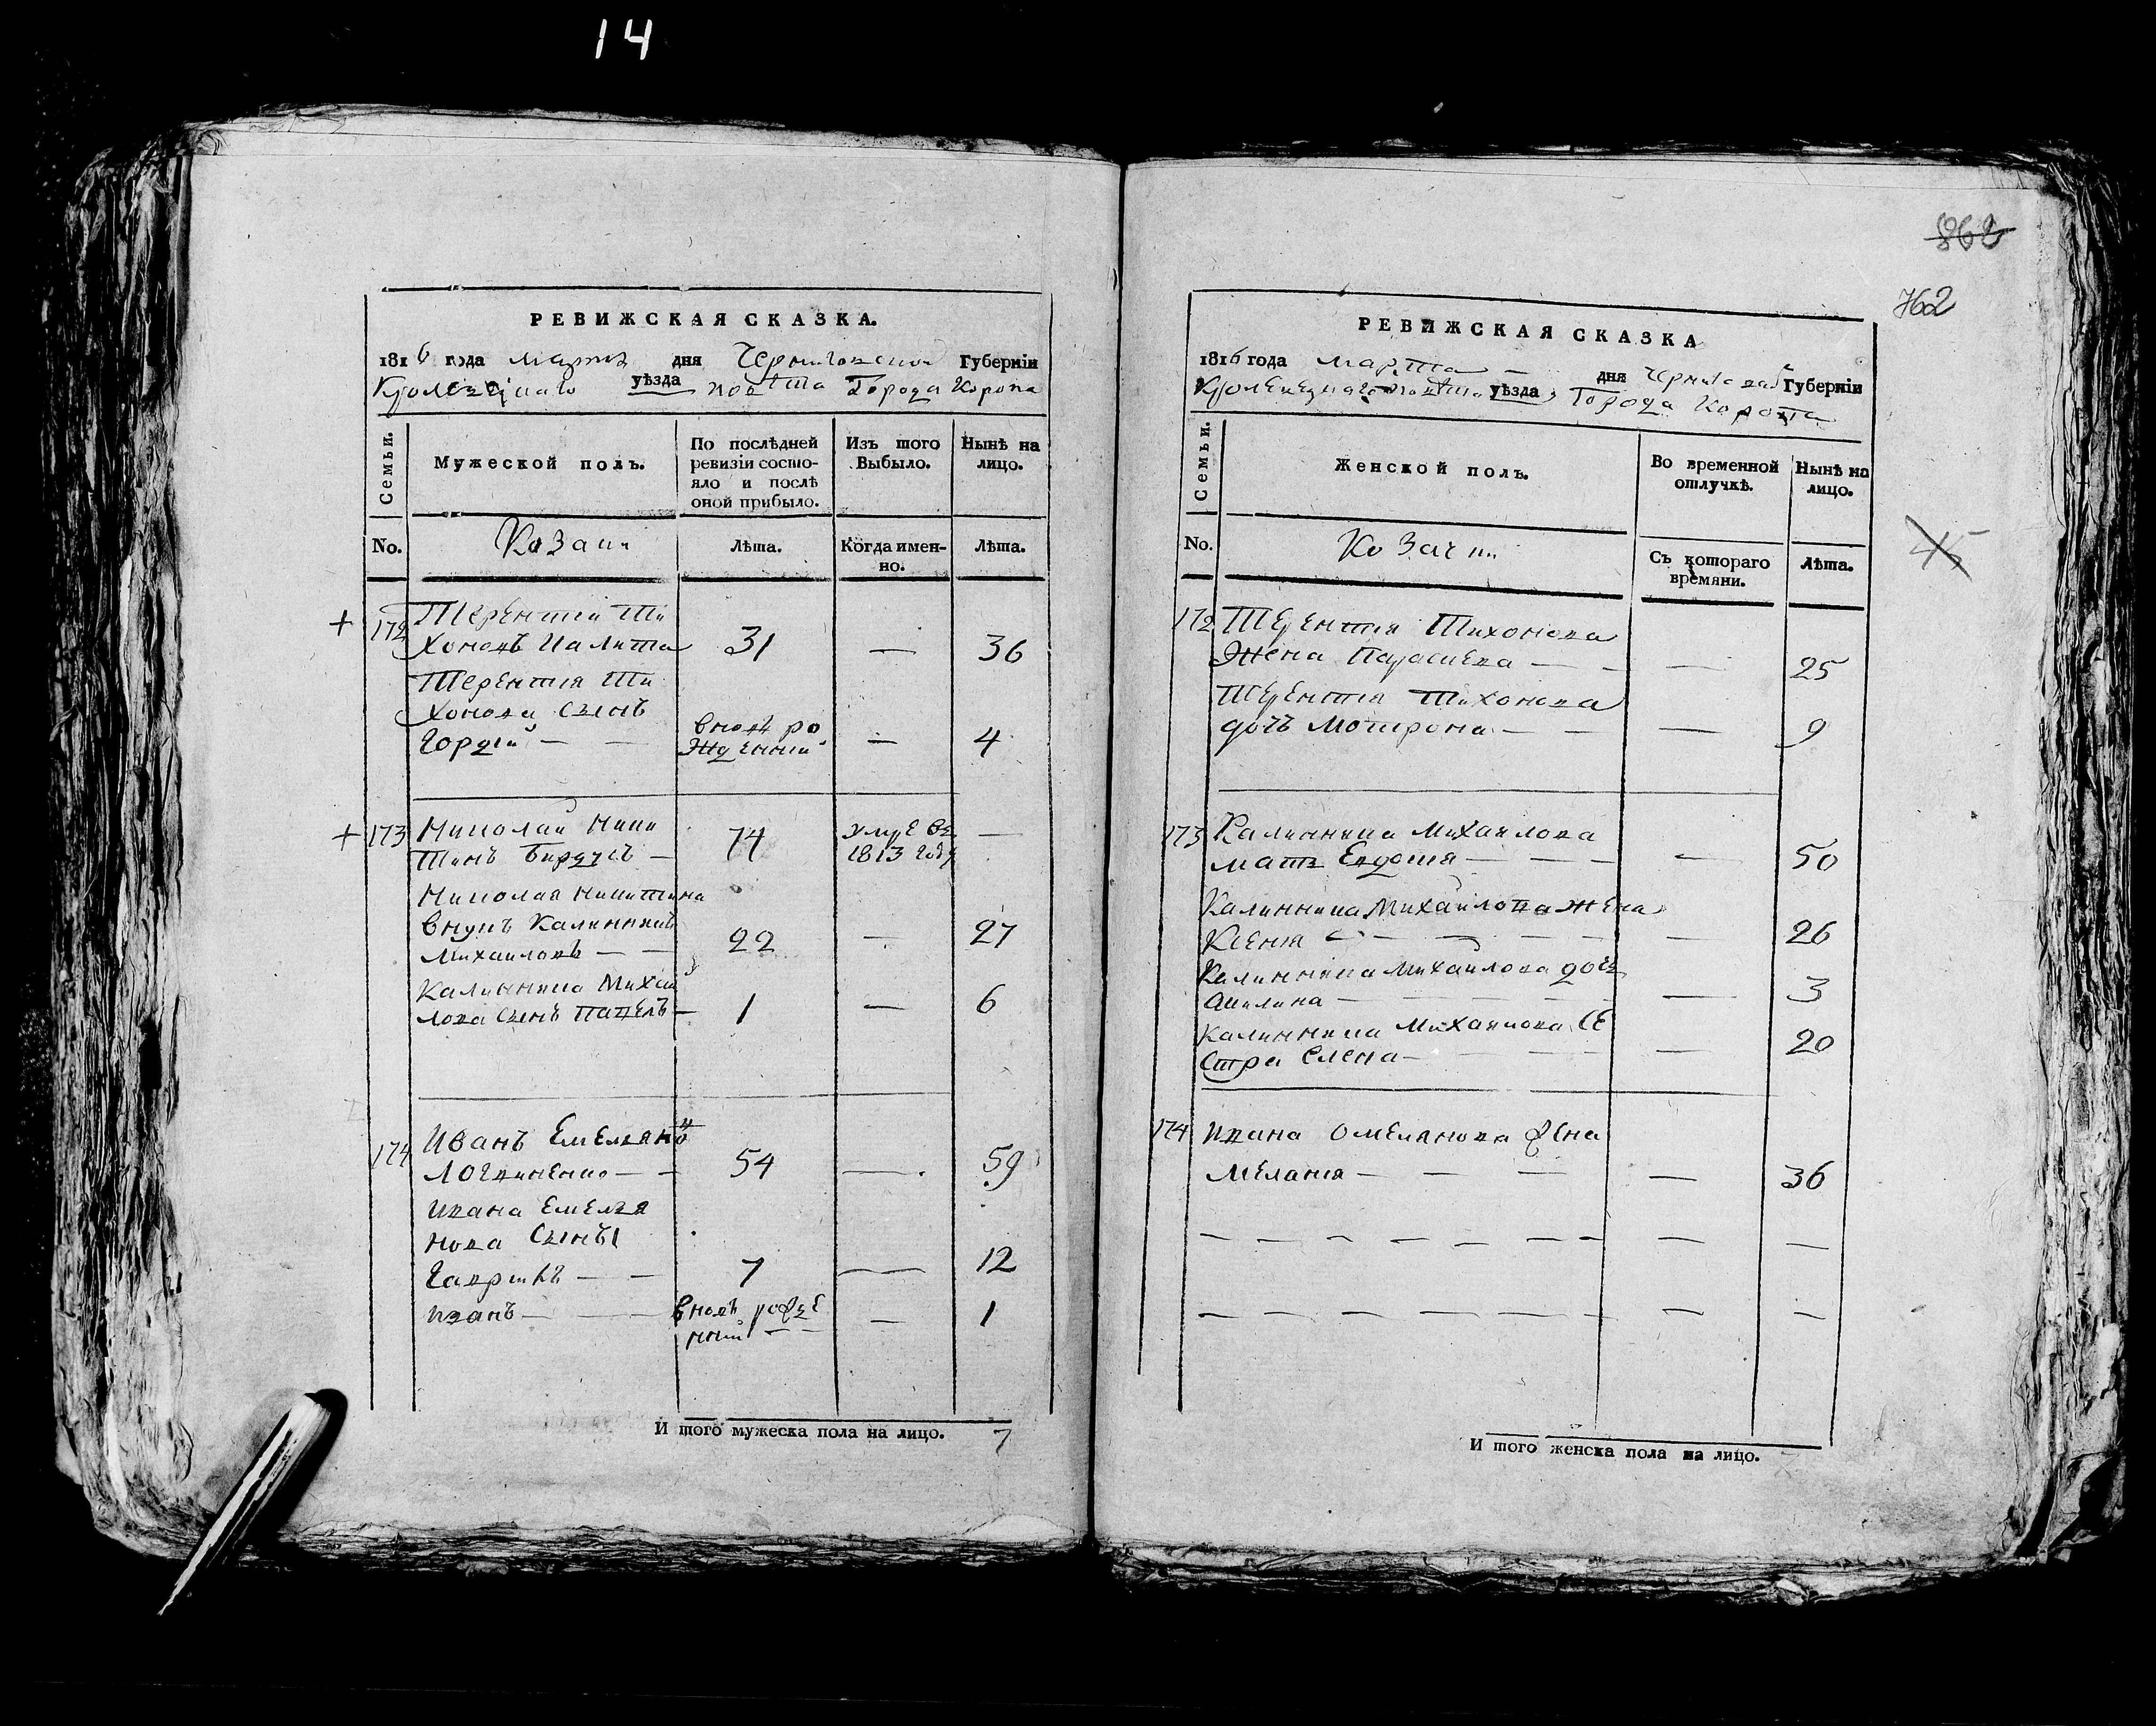 14
РЕВИЖСКАЯ СКАЗКА.
1816 года марта дня Черниговской Губерніи
Кролевецкаго уѣзда повѣта Города Коропа
Семьи.
Мужеской полъ.
По послѣдней ревизіи состояло и послѣ оной прибыло.
Изъ того Выбыло.
Нынѣ на лицо.
No.
Козаки
Лѣта.
Когда именно.
Лѣта.
+ 172 Терентій Ти
хоновъ Калита 31 — 36
Терентія Ти
хонова сынъ
Гордій — — вновь ро
жденный — 4
+ 173 Николай Ники
тинъ — 74 умре въ
1813 году —
Николая Никитина
внукъ Калинникъ
Михайловъ — — 22 — 27
Калинника Михай
лова сынъ Павелъ — 1 — 6
174 Иванъ Емельяно
Логвиненко — — 54 — 59
Ивана Емелья
нова сыны
Гаврило — — 7 — 12
Иванъ — — вновь рожде
нный — — — 1
И того мужеска пола на лицо. 7
862
762
РЕВИЖСКАЯ СКАЗКА
1816 года марта — дня Черниговской Губерніи
Кролевецкаго повѣта уѣзда Города Коропа
Семьи.
Женской полъ.
Во временной отлучкѣ.
Нынѣ на лицо.
No.
Козачки
Съ котораго времяни.
Лѣта.
45
172 Терентія Тихонова
жена Параскева — — — 25
Терентія Тихонова
дочъ Мотрона — — — 9
173 Калинника Михайлова
мать Евдокія — — — — 50
Калинника Михайлова жена
Ксенія — — — — — 26
Калинника Михайлова дочь
Акилина — — — — — 3
Калинника Михайлова се
стра Елена — — — — 20
174 Ивана Омелянова жена
Меланія — — — — 36
— — — — — — — — —
— — — — — — — — —
И того женска пола на лицо.